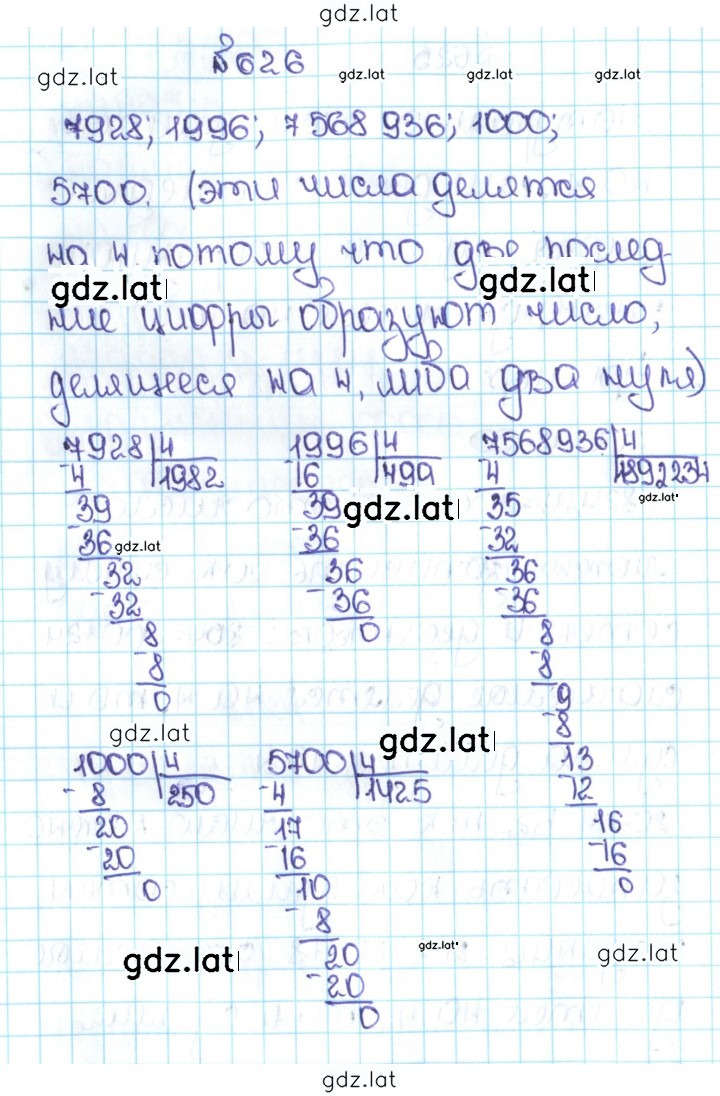 gdz.lat
№ 626
gdz.lat gdz.lat gdz.lat gdz.lat
7928; 1996; 7 568 936; 1000;
5700. (эти числа делятся
на 4 потому что две послед-
gdz.lat gdz.lat
ние цифры образуют число,
делящееся на 4, либо два нуля)
7928 4 1996 4 7568936 4
-4 1982 -16 499 -4 1892234
39 39 gdz.lat 35 gdz.lat
-36 gdz.lat -36 -32
32 36 36
-32 -36 -36
8 0 8
-8 -8
0 9
gdz.lat gdz.lat -8
1000 4 5700 4 13
-8 250 -4 1425 -12
20 17 16
-20 -16 -16
0 10 0
-8
gdz.lat 20 gdz.lat gdz.lat
-20
0
gdz.lat